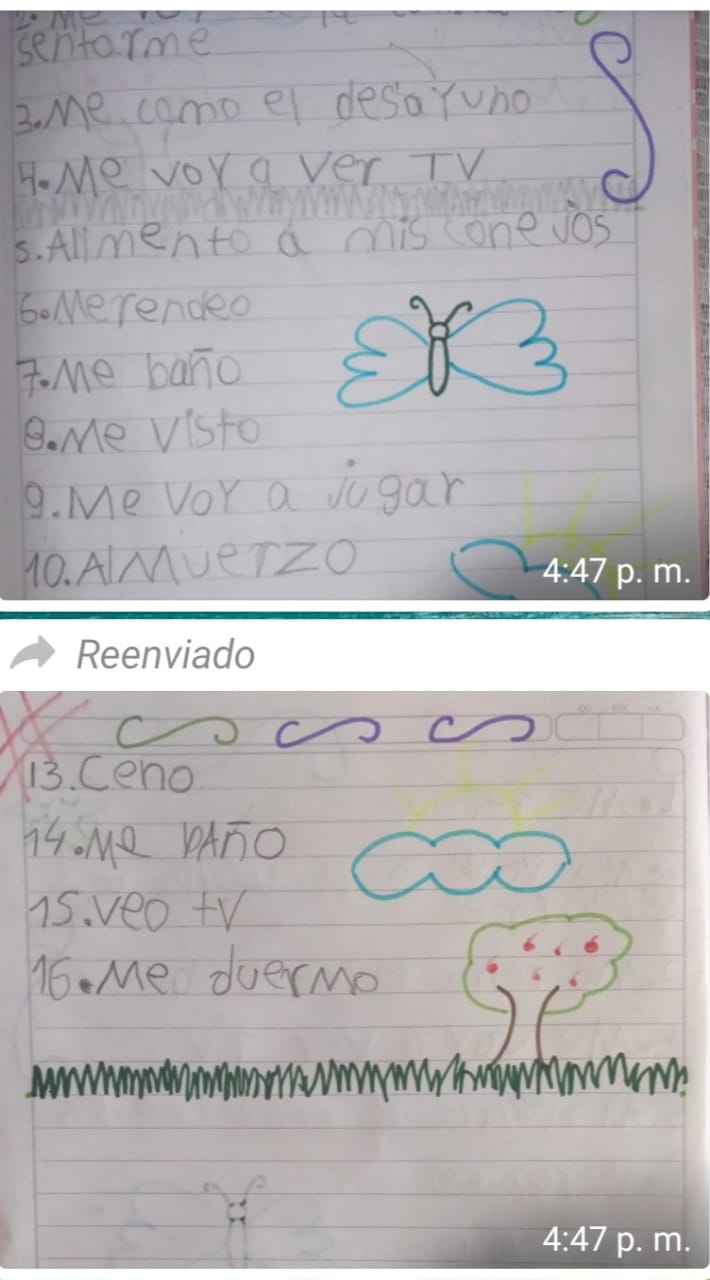 2. Me
sentarme
3. Me como el desayuno
4. Me voy a ver TV
5. Alimento a mis conejos
6. Merendeo
7. Me baño
8. Me visto
9. Me voy a jugar
10. Almuerzo
4:47 p. m.
Reenviado
13. Ceno
14. Me baño
15. veo tv
16. Me duermo
4:47 p. m.